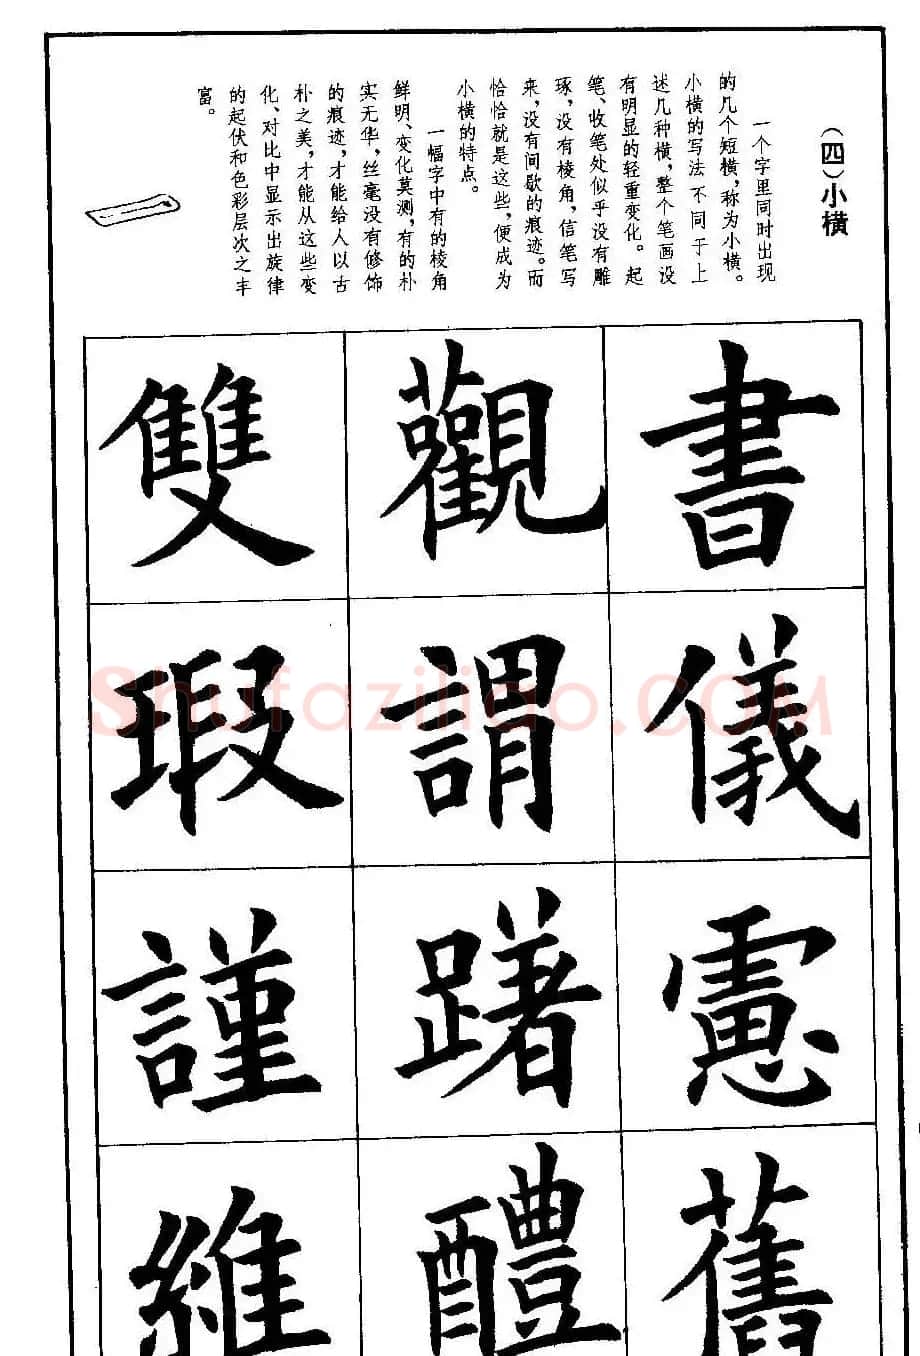 （四）小横
一个字里同时出现
的几个短横，称为小横。
小横的写法不同于上
述几种横，整个笔画没
有明显的轻重变化。起
笔、收笔处似乎没有雕
琢，没有棱角，信笔写
来，没有间歇的痕迹。而
恰恰就是这些，便成为
小横的特点。
一幅字中有的棱角
鲜明、变化莫测，有的朴
实无华，丝毫没有修饰
的痕迹，才能给人以古
朴之美，才能从这些变
化、对比中显示出旋律
的起伏和色彩层次之丰
富。
書儀慮舊
觀謂躇醴
雙瑕謹維
Shufaziliao.COM